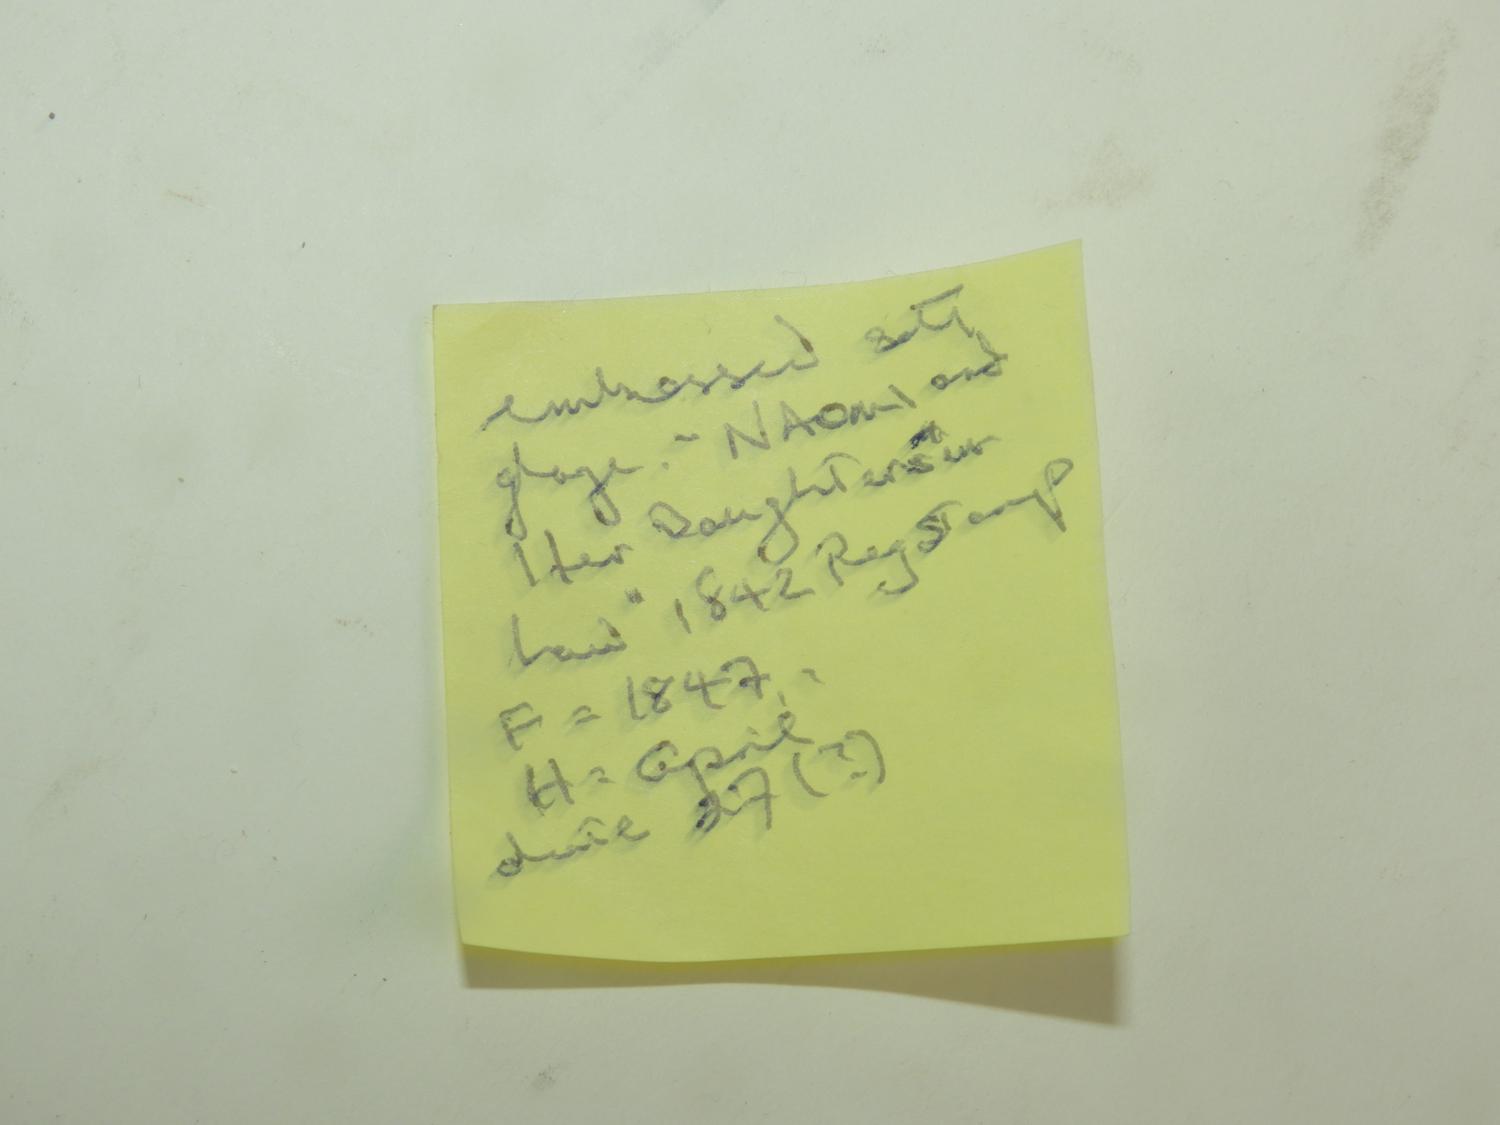 embossed
glaze. - NAOMI and
Her Daughters in
Law" 1842 Reg Stamp
F = 1847. -
H = April
date 27 (?)